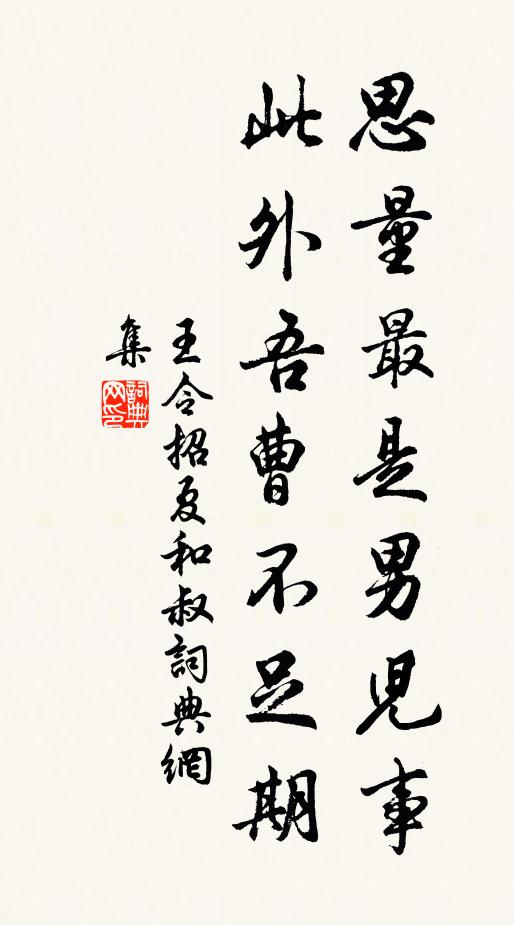 思量最是男兒事
此外吾曹不足期
王令招夏和叔詞典網
集
詞典
网印